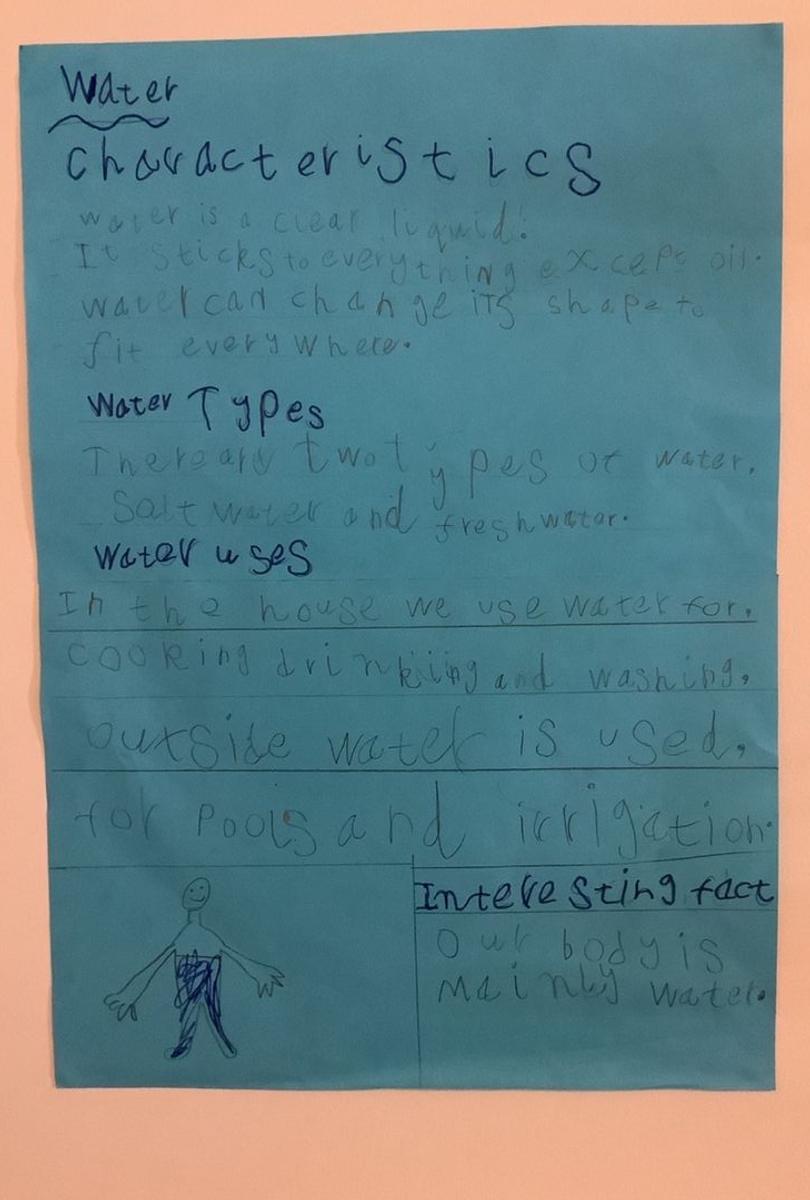 Water
characteristics
water is a clear liquid.
It sticks to everything except oil.
water can change its shape to
fit everywhere.
Water Types
There are two types of water.
Salt water and freshwater.
Water uses
In the house we use water for,
cooking drinking and washing,
outside water is used,
for pools and irrigation.
Interesting fact
Our body is
mainly water.